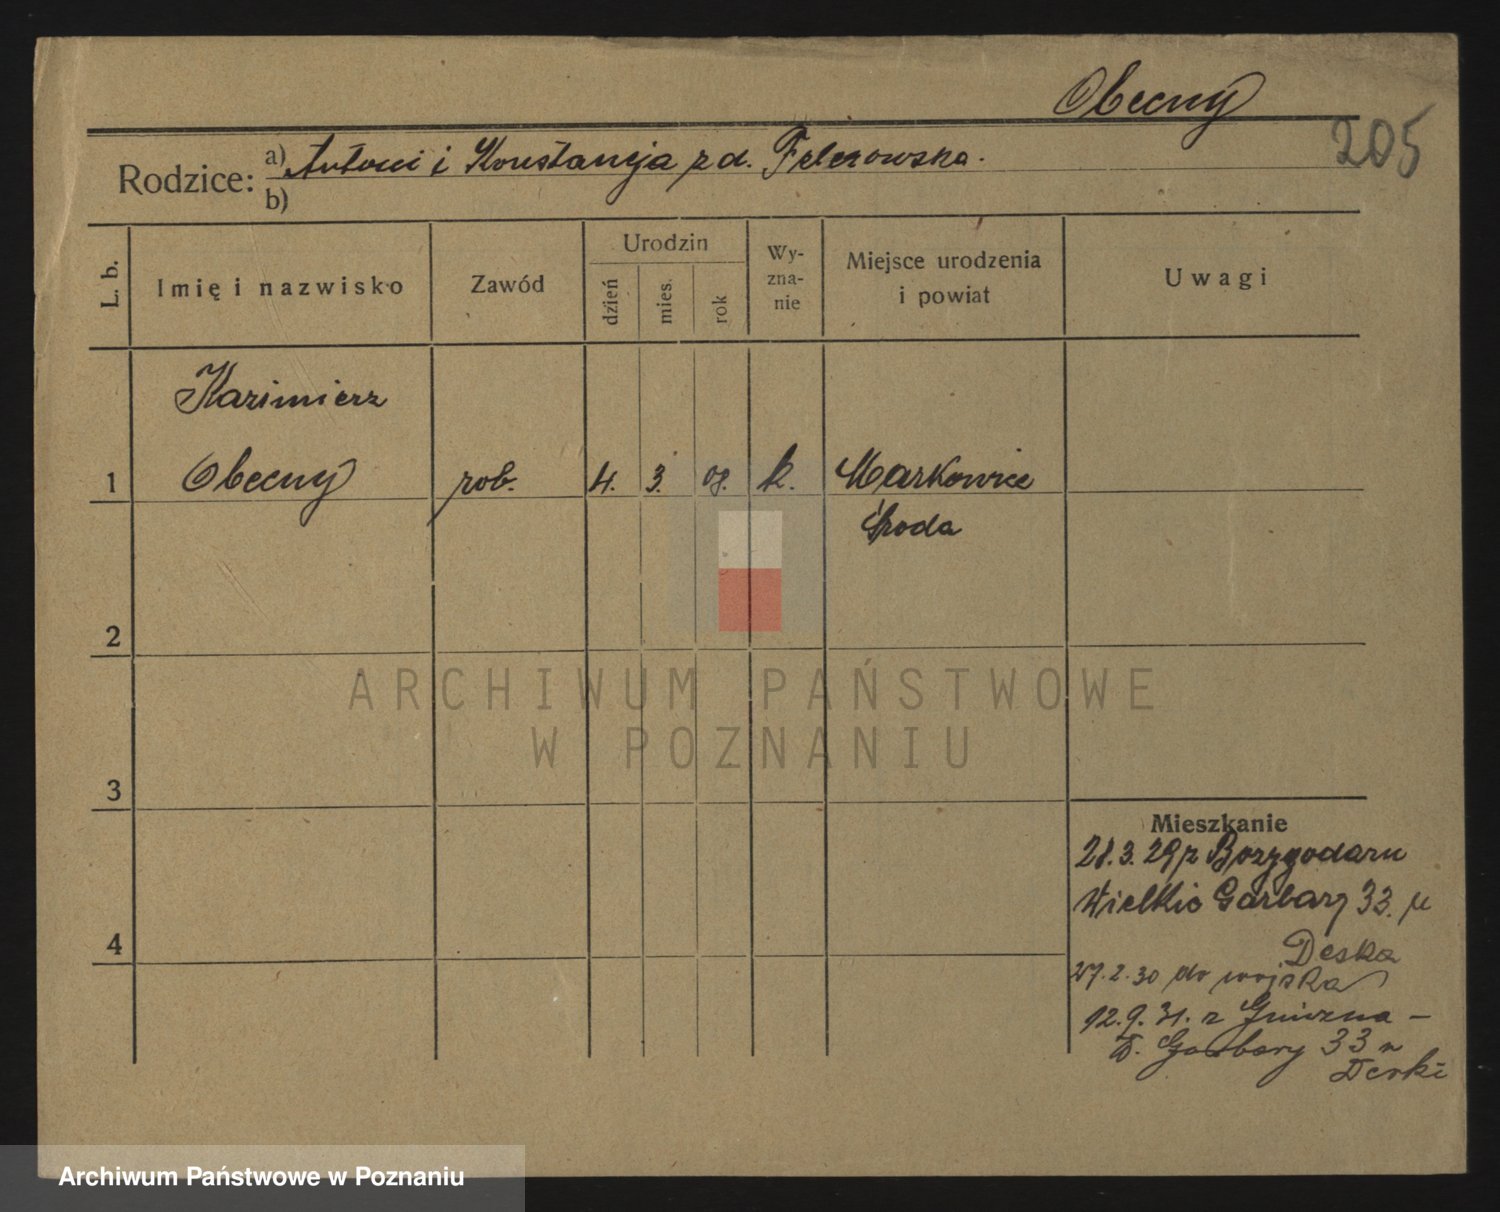 Obecny
205
Rodzice: a) Antoni i Konstancja z d. Felczowska.
b)
L. b.
Imię i nazwisko
Zawód
Urodzin
dzień
mies.
rok
Wy-
zna-
nie
Miejsce urodzenia
i powiat
Uwagi
Kazimierz
1 Obecny rob. 4. 3. 08. k. Markowice
Środa
2
3
4
Mieszkanie
28.3.29 z Bożygodaru
Wielkie Garbary 33. u
Deska
27.2.30 do wojska
12.9.31. z Gniezna –
W. Garbary 33 u
Deski
ARCHIWUM PAŃSTWOWE
W POZNANIU
Archiwum Państwowe w Poznaniu